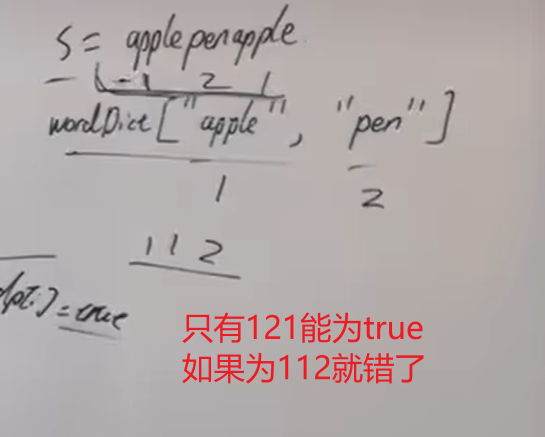 s = applepenapple
1 2 1
wordDict["apple", "pen"]
1 2
1 1 2
dp[i]=true
只有121能为true
如果为112就错了